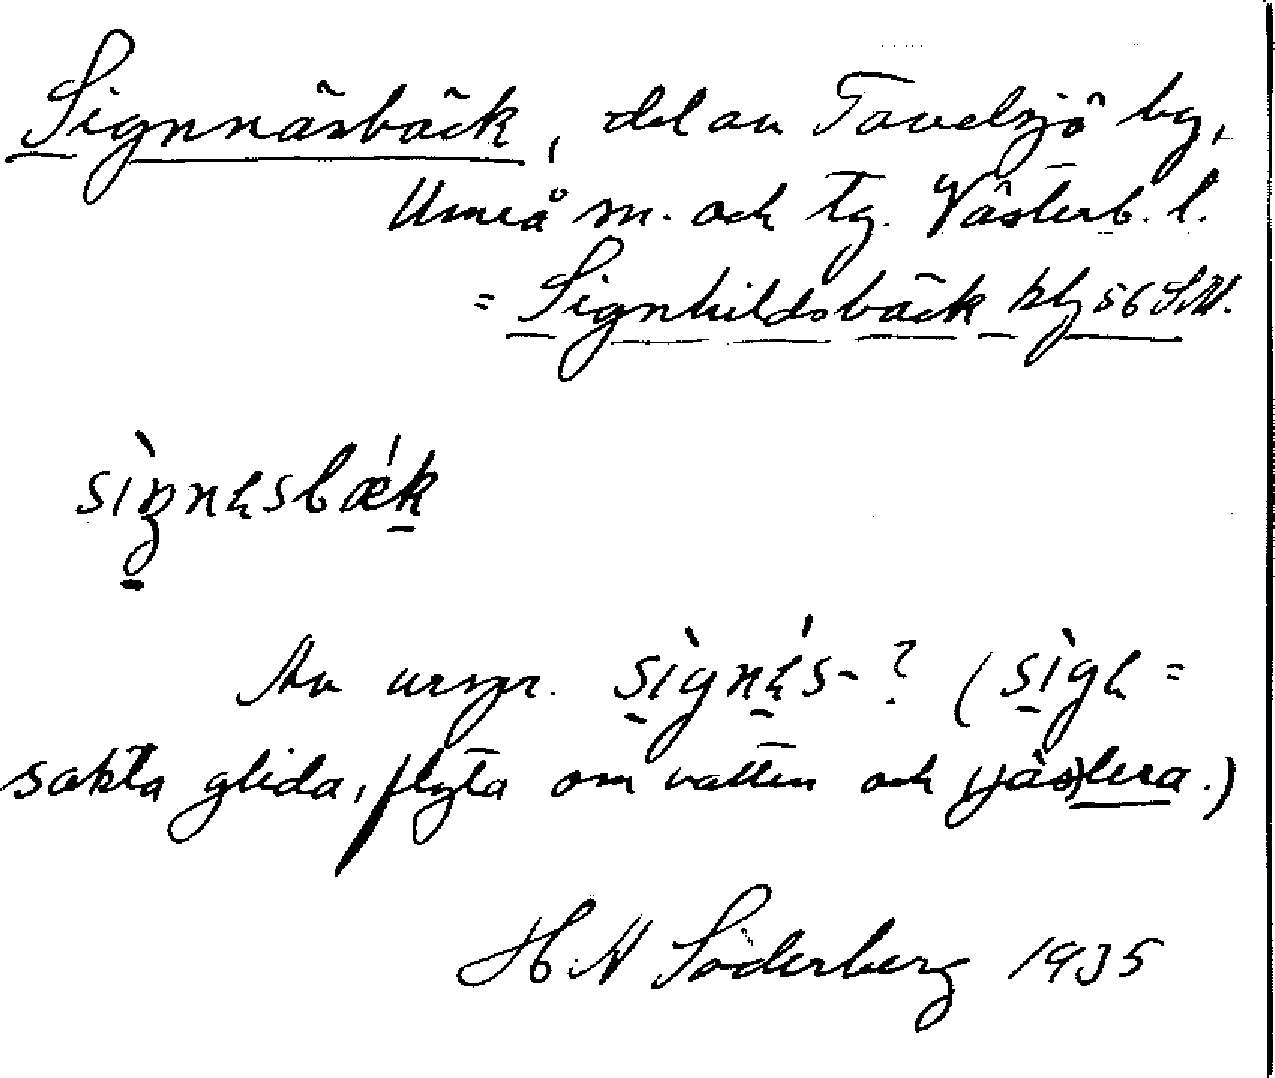 Signnäsbäck, del av Tavelsjö by,
Umeå m. och tg. Västerb. l.
= Signhildsbäck kbl 56 SV.
signəsbæk
Av urspr. signəs- ? (sigə =
sakta glida, flyta om vatten och
H. N Söderberg 1935